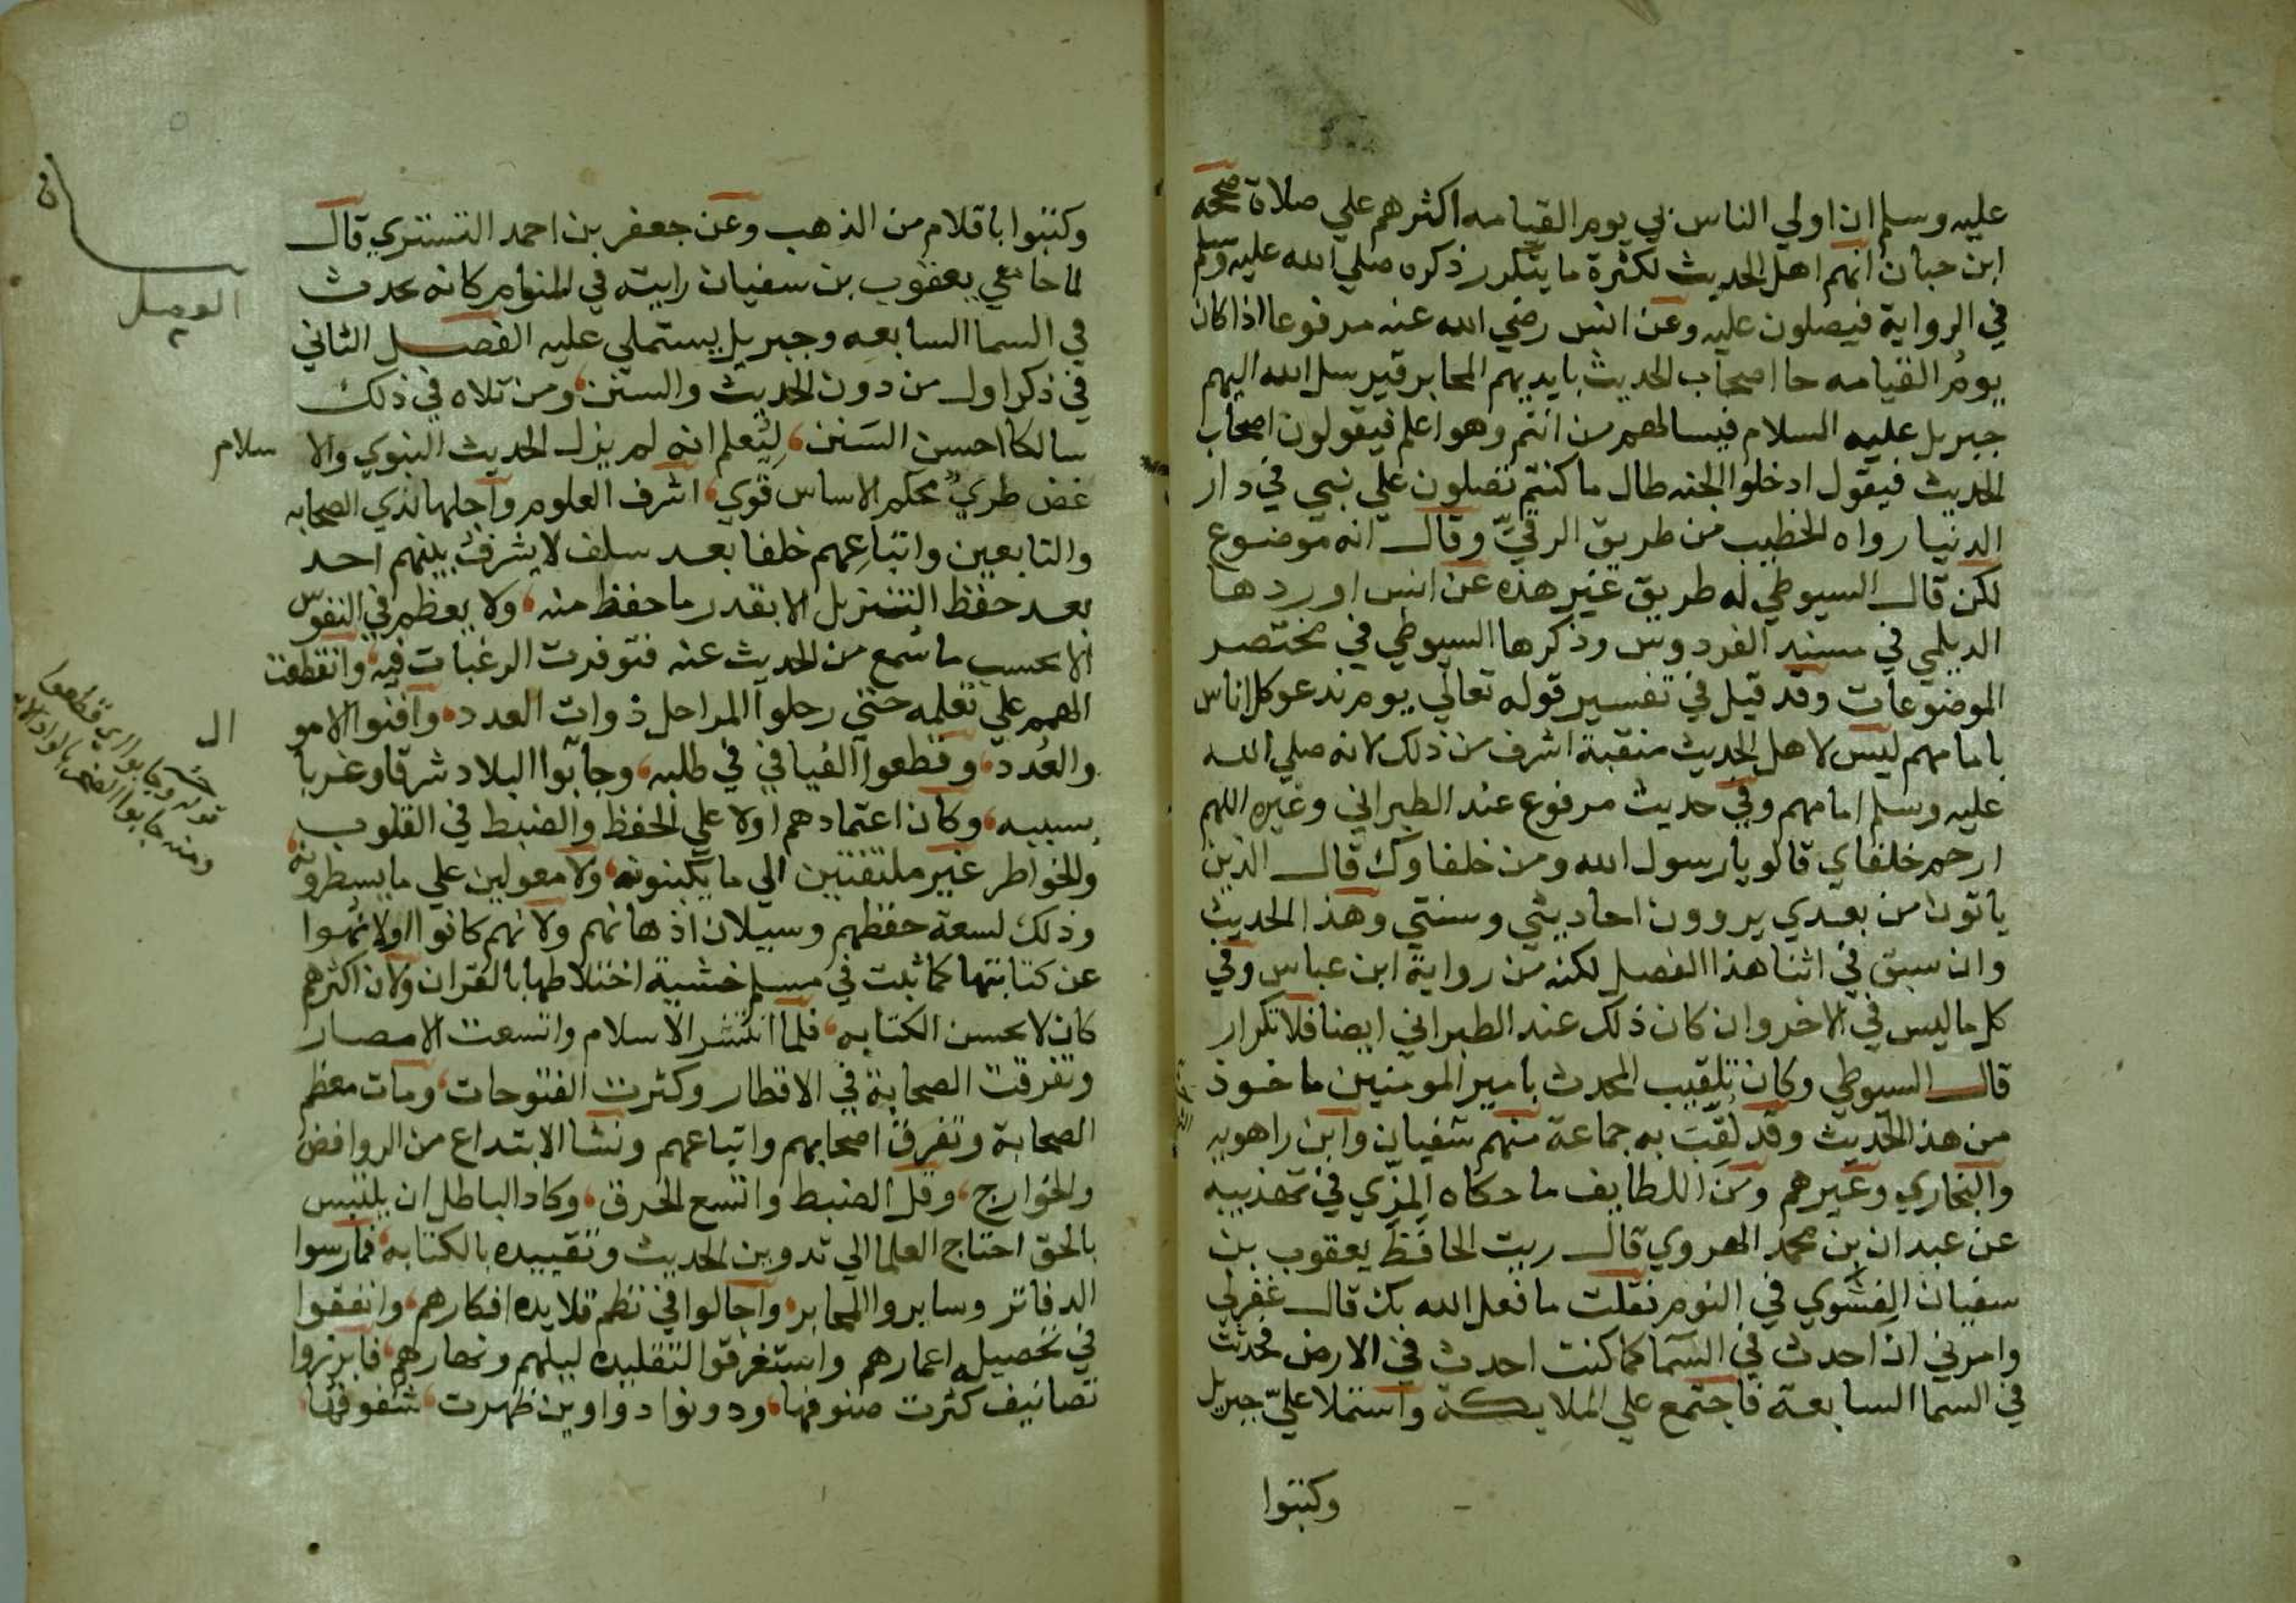 عليه وسلم ان اولي الناس بي يوم القيامه اكثرهم علي صلاة صححه
ابن حبان انهم اهل الحديث لكثرة ما يتكرر ذكره صلي الله عليه وسلم
في الرواية فيصلون عليه وعن انس رضي الله عنه مرفوعا اذا كان
يوم القيامه جا اصحاب الحديث بايديهم المحابر فيرسل الله اليهم
جبريل عليه السلام فيسالهم من انتم وهو اعلم فيقولون اصحاب
الحديث فيقول ادخلوا الجنه طال ما كنتم تصلون علي نبي في دار
الدنيا رواه الخطيب من طريق الرقي وقال انه موضوع
لكن قال السيوطي له طريق غير هذه عن انس اوردها
الديلمي في مسند الفردوس وذكرها السيوطي في مختصر
الموضوعات وقد قيل في تفسير قوله تعالي يوم ندعو كل اناس
بامامهم ليس لاهل الحديث منقبة اشرف من ذلك لانه صلي الله
عليه وسلم امامهم وفي حديث مرفوع عند الطبراني وغيره اللهم
ارحم خلفاي قالو يا رسول الله ومن خلفاوك قال الذين
ياتون من بعدي يروون احاديثي وسنتي وهذا الحديث
وان سبق في اثنا هذا الفصل لكنه من رواية ابن عباس وفي
كل ما ليس في الاخر وان كان ذلك عند الطبراني ايضا فلا تكرار
قال السيوطي وكان تلقيب المحدث بامير المومنين ماخوذ
من هذ الحديث وقد لقب به جماعة منهم سفيان وابن راهويه
والبخاري وغيرهم ومن اللطايف ما حكاه المزي في تهذيبه
عن عبدان بن محمد الهروي قال ريت الحافظ يعقوب بن
سفيان الفسوي في النوم فقلت ما فعل الله بك قال غفرلي
وامرني ان احدث في السما كما كنت احدث في الارض فحدثت
في السما السابعة فاجتمع علي الملايكة واستملا علي جبريل
وكتبوا
وكتبوا باقلام من الذهب وعن جعفر بن احمد التستري قال
لما جا نعي يعقوب بن سفيان رايته في المنام كانه يحدث
في السما السابعه وجبريل يستملي عليه الفصل الثاني
في ذكر اول من دون الحديث والسنن ومن تلاه في ذلك
سالكا احسن السنن ليعلم انه لم يزل الحديث النبوي والاسلام
غض طري محكم الاساس قوي اشرف العلوم واجلها لذي الصحابه
والتابعين واتباعهم خلفا بعد سلف لا يشرف بينهم احد
بعد حفظ التنزيل الا بقدر ما حفظ منه ولا يعظم في النفوس
الا بحسب ما سمع من الحديث عنه فتوفرت الرغبات فيه وانقطعت
الهمم علي تعلمه حتي رحلوا المراحل ذوات العدد وافنوا الامو ال
والعدد وقطعوا الفيافي في طلبه وجابوا البلاد شرقا وغربا
بسببه وكان اعتمادهم اولا علي الحفظ والضبط في القلوب
والخواطر غير ملتفتين الي ما يكتبونه ولا معولين علي ما يسطرونه
وذلك لسعة حفظهم وسيلان اذهانهم ولانهم كانوا اولا نهوا
عن كتابتها كما ثبت في مسلم خشية اختلاطها بالقران ولان اكثرهم
كان لا يحسن الكتابه فلما انتشر الاسلام واتسعت الامصار
وتفرقت الصحابة في الاقطار وكثرت الفتوحات ومات معظم
الصحابة وتفرق اصحابهم واتباعهم ونشا الابتداع من الروافض
والخوارج وقل الضبط واتسع الخرق وكاد الباطل ان يلتبس
بالحق احتاج العلما الي تدوين الحديث وتقييده بالكتابه فمارسوا
الدفاتر وسايروا المحابر واجالوا في نظم قلايده افكارهم وانفقوا
في تحصيله اعمارهم واستغرقوا لتقليده ليلهم ونهارهم فابرزوا
تصانيف كثرت صنوفها ودونوا دواوين ظهرت شفوفها
قوله وجابوا اي قطعوا
ومنه جابوا الصخر بالواد الاية